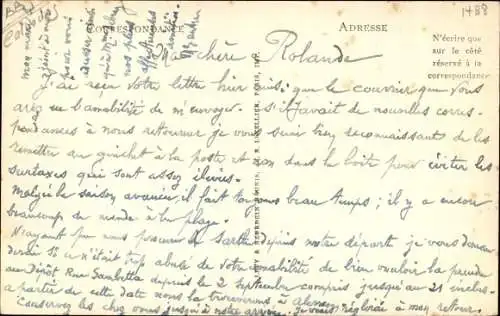 CORRESPONDANCE
ADRESSE
1488
N'écrire que
sur le côté
réservé à la
correspondance
Ma chère Rolande
J'ai reçu votre lettre hier ainsi que le courrier que vous
avez eu l'amabilité de m'envoyer. S'il y avait de nouvelles corres-
pondances à nous retourner je vous serai bien reconnaissant de les
remettre au guichet à la poste et non dans la boîte pour éviter les
surtaxes qui sont assez élevées.
Malgré la saison avancée, il fait toujours beau temps; il y a encore
beaucoup de monde à la plage.
N'ayant pu nous procurer la Sarthe depuis notre départ je vous demanderais
si ce n'était trop abuser de votre amabilité de bien vouloir la prendre
au Dépôt Rue Gambetta depuis le 2 septembre compris jusqu'au 21 inclus.
à partir de cette date nous la trouverons à
Conservez les chez vous jusqu'à notre arrivée. Je vous réglerai à mon retour.
Mon mari
se joint à moi
pour vous
adresser ainsi
qu'à
nos plus
affectueuses
amitiés